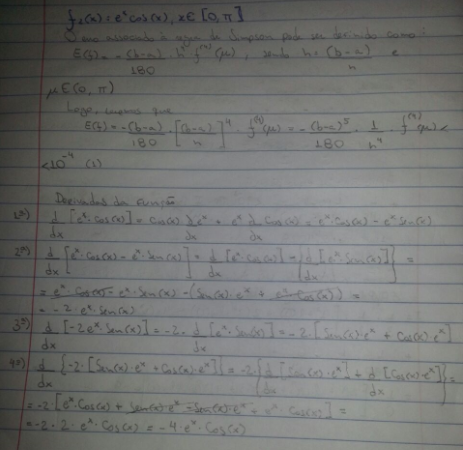 f₂(x) = eˣ cos(x), x ∈ [0, π]
O erro associado à regra de Simpson pode ser definido como:
E(f) = -(b-a)/180 · h⁴ · f⁽⁴⁾(μ), sendo h = (b-a)/n e
μ ∈ (0, π)
Logo, que
E(f) = -(b-a)/180 · [(b-a)/n]⁴ · f⁽⁴⁾(μ) = -(b-a)⁵/180 · 1/n⁴ · f⁽⁴⁾(μ) <
< 10⁻⁴ (1)
Derivadas da função
1ª) d/dx [eˣ · cos(x)] = cos(x) d/dx eˣ + eˣ d/dx cos(x) = eˣ · cos(x) - eˣ sen(x)
2ª) d/dx [eˣ · cos(x) - eˣ · sen(x)] = d/dx [eˣ cos(x)] - {d/dx [eˣ · sen(x)]} =
= eˣ · cos(x) - eˣ · sen(x) - (sen(x) · eˣ + eˣ · cos(x)) =
= -2 · eˣ · sen(x)
3ª) d/dx [-2 eˣ · sen(x)] = -2 · d/dx [eˣ · sen(x)] = -2 · [sen(x) · eˣ + cos(x) · eˣ]
4ª) d/dx {-2 · [sen(x) · eˣ + cos(x) · eˣ]} = -2 · {d/dx [sen(x) · eˣ] + d/dx [cos(x) · eˣ]} =
= -2 [eˣ · cos(x) + sen(x) · eˣ - sen(x) · eˣ + eˣ · cos(x)] =
= -2 · 2 · eˣ · cos(x) = -4 eˣ · cos(x)